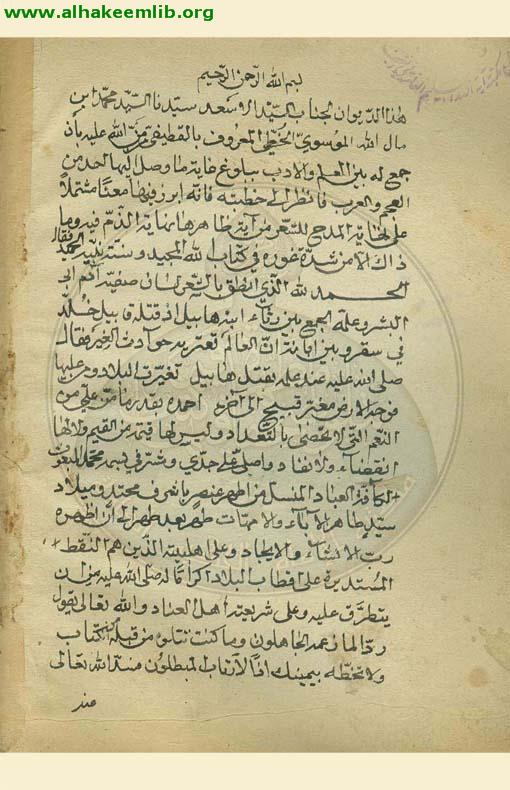 www.alhakeemlib.org
بسم الله الرحمن الرحيم
هذا الديوان لجناب السيد الاسعد سيدنا السيد محمد ابن
مال الله الموسوي الخطي المعروف بالقطيفي من الله عليه بأن
جمع له بين العلم والادب ببلوغ غاية ما وصل اليها احد من
العجم والعرب فانظر الى خطبته فانه ابرز فيها معنا مشتملا
على غاية المدح للشعر من آية ظاهرها نهاية الذم فيه وما
ذاك الا من شدة غوره في كتاب الله المجيد وسنة نبيه الحميد فقال
الحمد لله الذي انطق بالشعر لسان صفيه آدم ابي
البشر وعلة الجمع بين رثاء ابنه هابيل اذ قتله قابيل خلد
في سقر وبين ابانة ان العالم تعتريه حوادث الغير فقال
صلى الله عليه عند علمه بقتل هابيل تغيرت البلاد ومن عليها
فوجه الارض مغبر قبيح الى آخره احمده بقدر ما من علي من
النعم التي لا تحصى بالتعداد وليس لها قيمة من القيم ولا لها
انقضاء ولا نفاد واصلي على جدي وشرفي نبيه محمد المبعوث
لكافة العباد المنسل من اطهر عنصر باشرف محتد وميلاد
سيد طاهر الآباء والامهات طهر بعد طهر الى ان اظهره
رب الانشاء والايجاد وعلى اهل بيته الذين هم النقط
المستديرة على اقطاب البلاد اكراما له صلى الله عليه من ان
يتطرق عليه وعلى شريعته اهل العناد والله تعالى يقول
ردا لما زعمه الجاهلون وما كنت تتلو من قبله من كتاب
ولا تخطه بيمينك اذا لارتاب المبطلون منه الله تعالى
عند